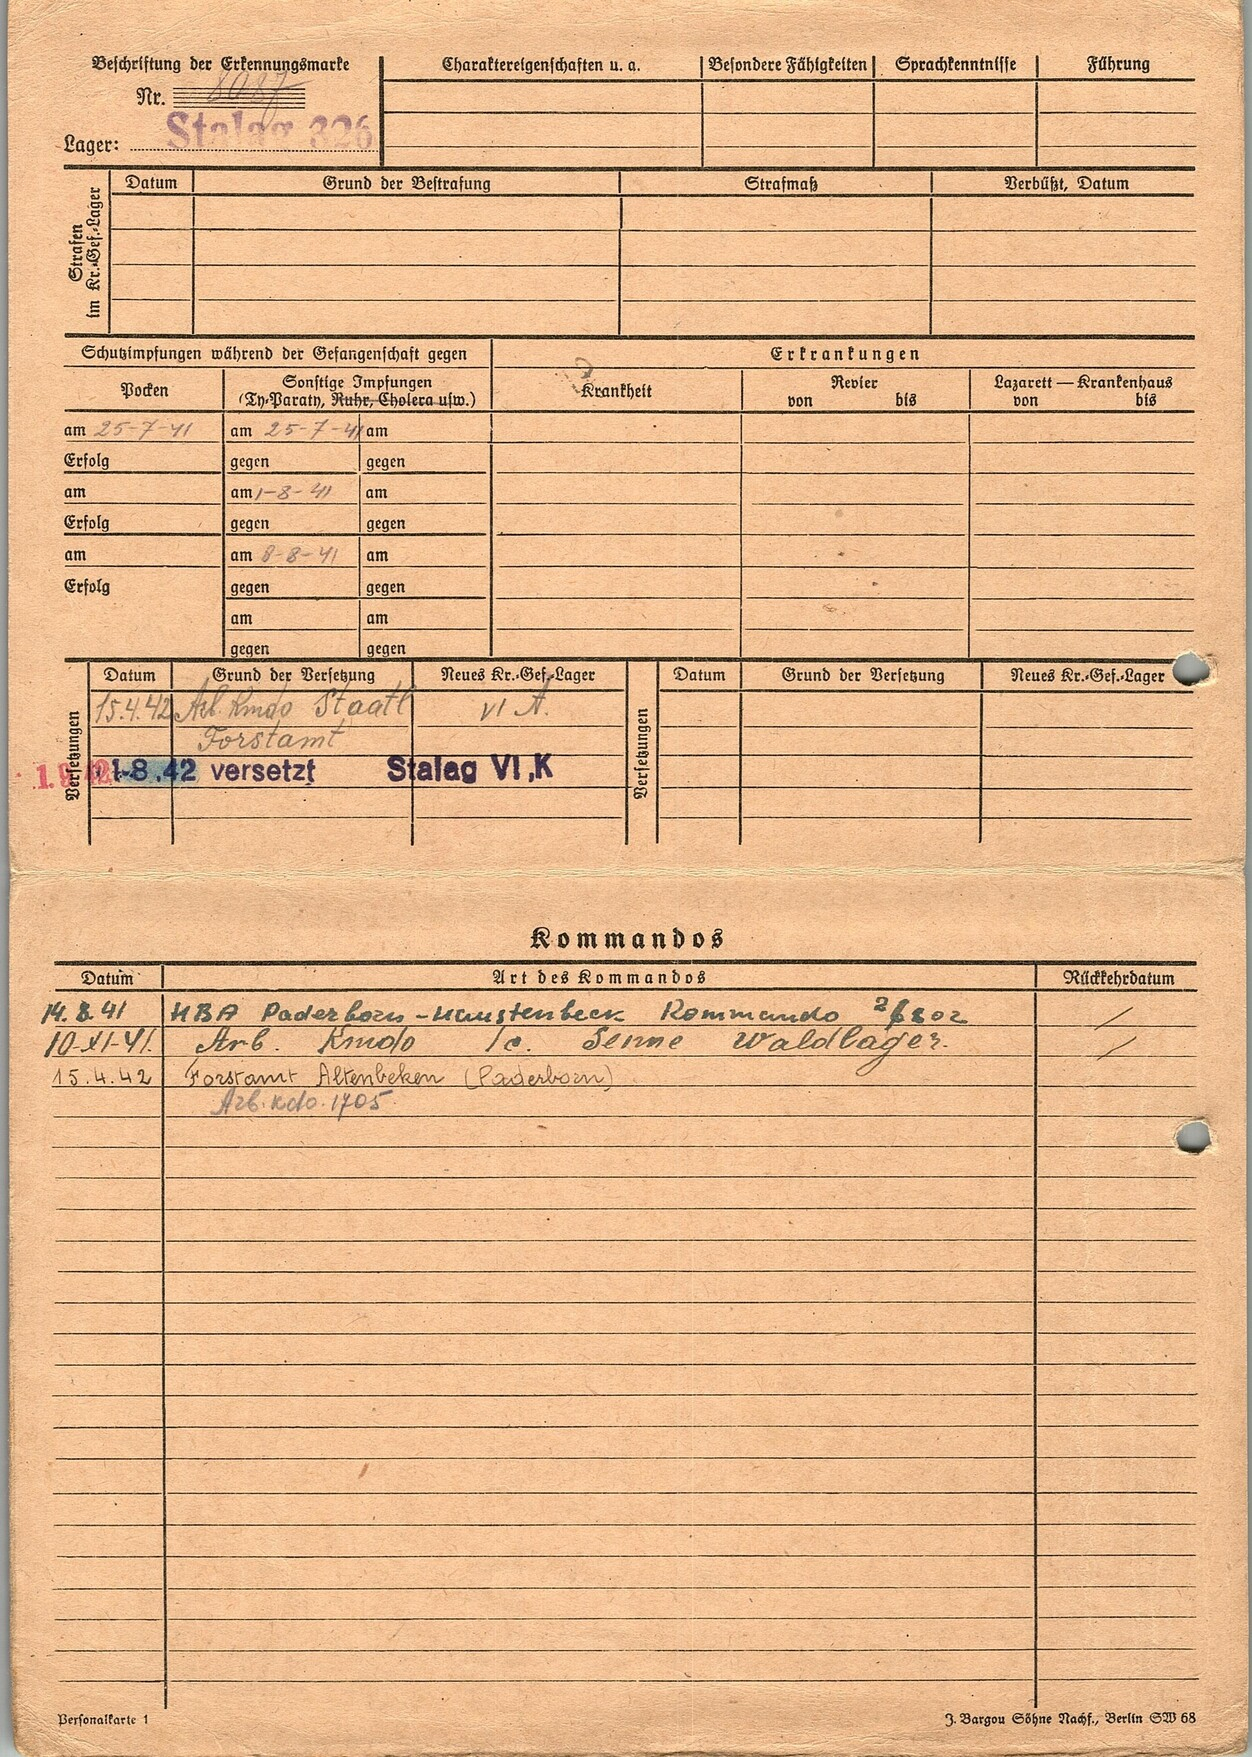 Beschriftung der Erkennungsmarke
Nr. 8087
Lager: Stalag 326
Charaktereigenschaften u. a.
Besondere Fähigkeiten
Sprachkenntnisse
Führung
Strafen
im Kr.-Gef.-Lager
Datum
Grund der Bestrafung
Strafmaß
Verbüßt, Datum
Schutzimpfungen während der Gefangenschaft gegen
Erkrankungen
Pocken
Sonstige Impfungen
(Ty-Paraty, Ruhr, Cholera usw.)
Krankheit
Revier
von bis
Lazarett — Krankenhaus
von bis
am 25-7-41 am 25-7-41 am
Erfolg gegen gegen
am am 1-8-41 am
Erfolg gegen gegen
am am 8-8-41 am
Erfolg gegen gegen
am am
gegen gegen
Versetzungen
Datum Grund der Versetzung Neues Kr.-Gef.-Lager
15.4.42 Arb. Kmdo Staatl VI A.
Forstamt
1-8.42 versetzt Stalag VI,K
Versetzungen
Datum Grund der Versetzung Neues Kr.-Gef.-Lager
Kommandos
Datum Art des Kommandos Rückkehrdatum
14.8.41 HBA Paderborn-Haustenbeck Kommando
10-XI-41. Arb. Kmdo Senne Waldlager.
15.4.42 Forstamt Altenbeken (Paderborn)
Arb. kdo. 1705
Personalkarte 1
J. Bargou Söhne Nachf., Berlin SW 68